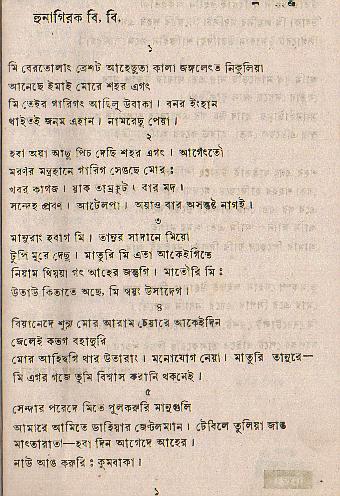 হুনাগিরক বি. বি.
১
মি বেরতোলাৎ ব্রেশট আহেছুতা কালা জঙ্গলেংত নিকুলিয়া
আনেছে ইমাই মোরে শহর এগৎ
মি তেইর গারিগৎ আছিলু উবাকা। বনর ইংহান
থাইতই জনম এহান। নামরেছু পেয়া।
২
হবা অয়া আছু পিচ দেছি শহর এগৎ। আর্গেংতো
মরণর মন্ত্রহানে গারিগ সেঙছে মোর :
খবর কাগজ। য়াক তাম্রকুট। বার মদ।
সন্দেহ প্রবণ। আটেলপা। অয়াও বার অসন্তুষ্ট নাগই।
৩
মানুরাং হবাগ মি। তানুর সাদানে মিয়ো
টুপি মুরে দেছু। মাতুরি মি এতা আকেইগিতে
নিয়াম থিয়য়া গৎ আহের জন্তুগি। মাতৌরি মি :
উতাউ কিতাতে অছে, মি স্বয়ং উসাদেগ।
৪
বিয়ানেদে শূন্য মোর আরাম চেয়ারে আকেইদিন
জেলেই কতগ বহাছুরি
মোর আহিহুগি থার উতারাং। মনোযোগ নেয়া। মাতুরি তানুরে—
মি এগর গজে তুমি বিশ্বাস করানি থকনেই।
৫
সেন্দার পরেদে মিতে পুলকরুরি মানুগুলি
আমারে আমিতে ডাহিয়ার জেণ্টলম্যান। টেবিলে তুলিয়া জাঙ
মাৎতারাতা—হবা দিন আগেদে আহের।
নাউ আঙ করুরি : কুমবাকা।
১